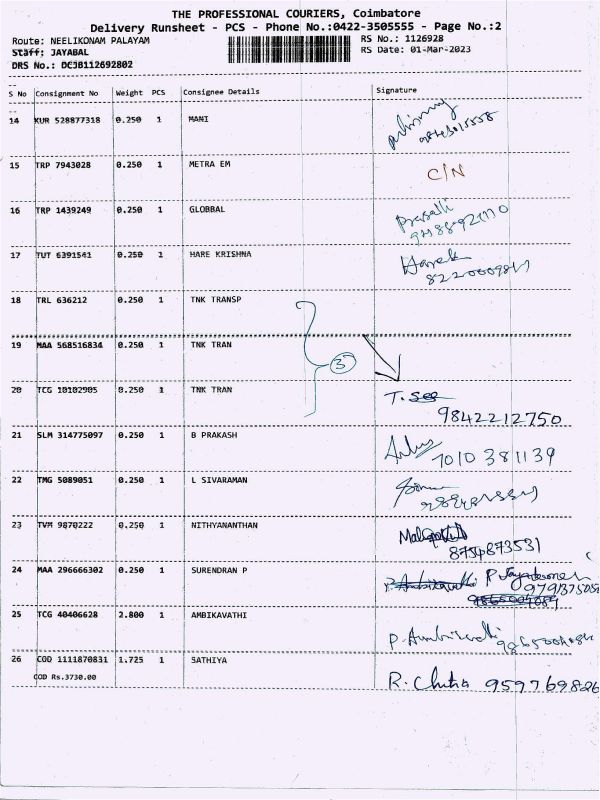 THE PROFESSIONAL COURIERS, Coimbatore
Delivery Runsheet - PCS - Phone No.:0422-3505555 - Page No.:2
Route: NEELIKONAM PALAYAM RS No.: 1126928
Staff: JAYABAL RS Date: 01-Mar-2023
DRS No.: DCJB112692802
S No Consignment No Weight PCS Consignee Details Signature
14 KUR 528877318 0.250 1 MANI
15 TRP 7943028 0.250 1 METRA EM C/N
16 TRP 1439249 0.250 1 GLOBBAL
17 TUT 6391541 0.250 1 HARE KRISHNA
18 TRL 636212 0.250 1 TNK TRANSP
19 MAA 568516834 0.250 1 TNK TRAN 3
20 TCG 10102905 0.250 1 TNK TRAN
9842212750
21 SLM 314775097 0.250 1 B PRAKASH
7010381139
22 TMG 5089051 0.250 1 L SIVARAMAN
23 TVM 9870222 0.250 1 NITHYANANTHAN
8754873531
24 MAA 296666302 0.250 1 SURENDRAN P
25 TCG 40406628 2.800 1 AMBIKAVATHI
26 COD 1111870831 1.725 1 SATHIYA R. Chitra 959769826
COD Rs.3730.00